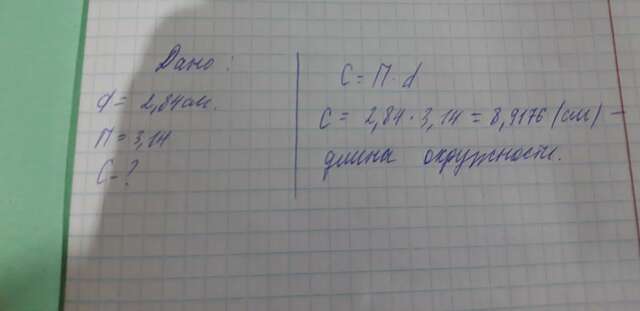 Дано:
d = 2,84см.
П = 3,14
C - ?
C = П · d
C = 2,84 · 3,14 = 8,9176 (см) –
длина окружности.